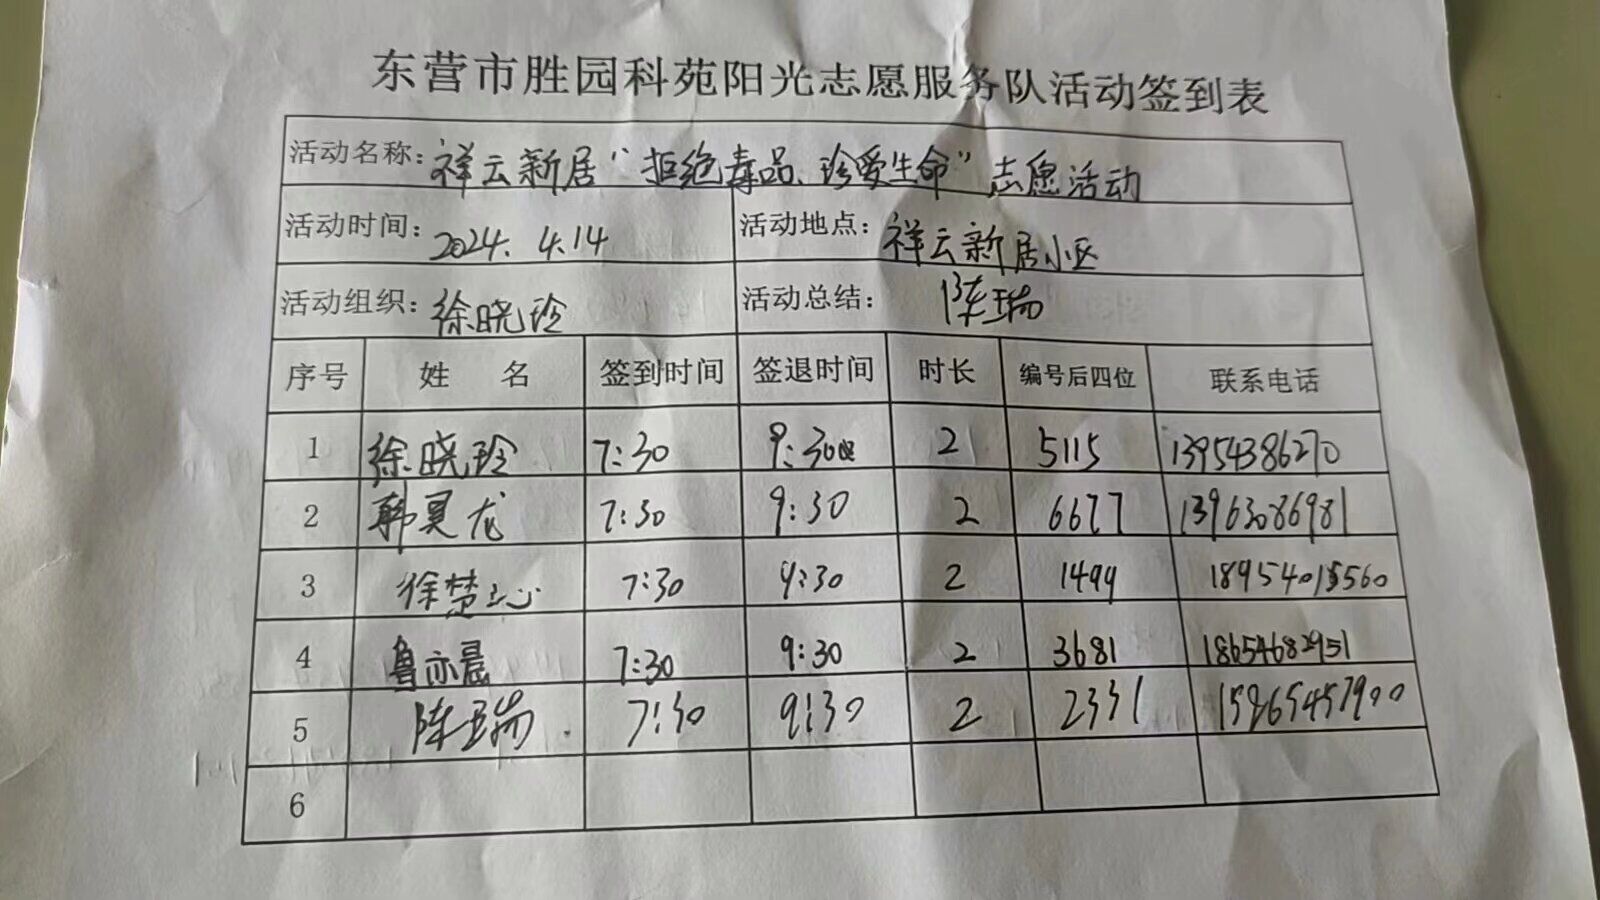 东营市胜园科苑阳光志愿服务队活动签到表
活动名称：祥云新居“拒绝毒品、珍爱生命”志愿活动
活动时间：2024.4.14 活动地点：祥云新居小区
活动组织：徐晓玲 活动总结：陈瑞
序号 姓名 签到时间 签退时间 时长 编号后四位 联系电话
1 徐晓玲 7:30 9:30 2 5115 13954386270
2 韩昊龙 7:30 9:30 2 6677 13963086981
3 徐楚沁 7:30 9:30 2 1499
4 7:30 9:30 2 3681 18654682951
5 陈瑞 7:30 9:30 2 2331 15865457900
6